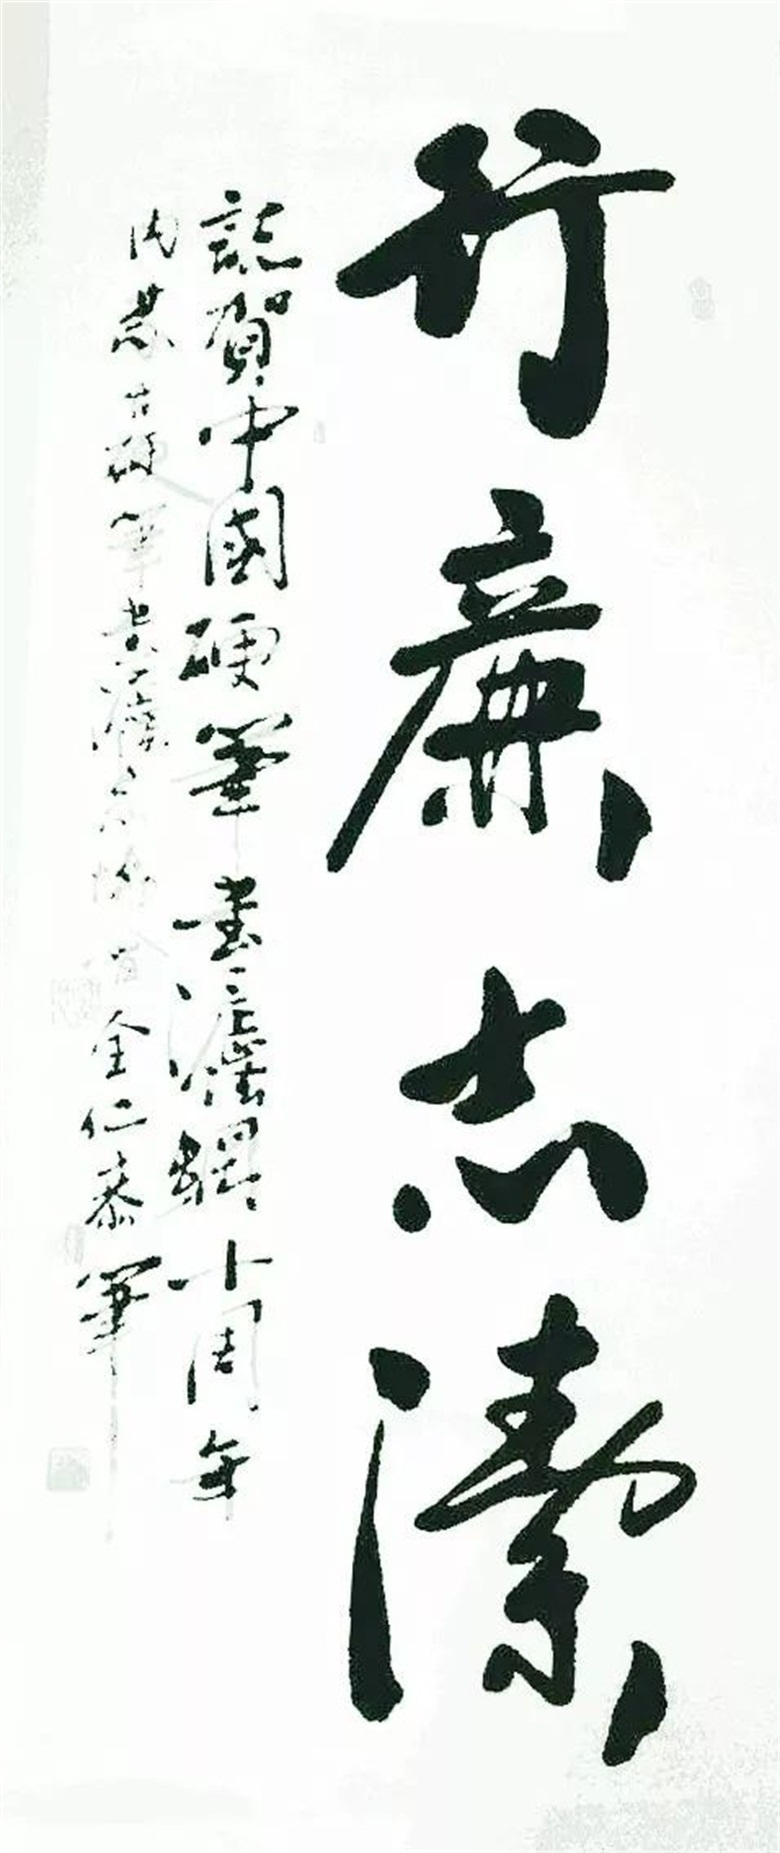 行廉志潔
誌賀中國硬筆書法網十周年
内蒙古硬筆書法家協會金仁泰筆